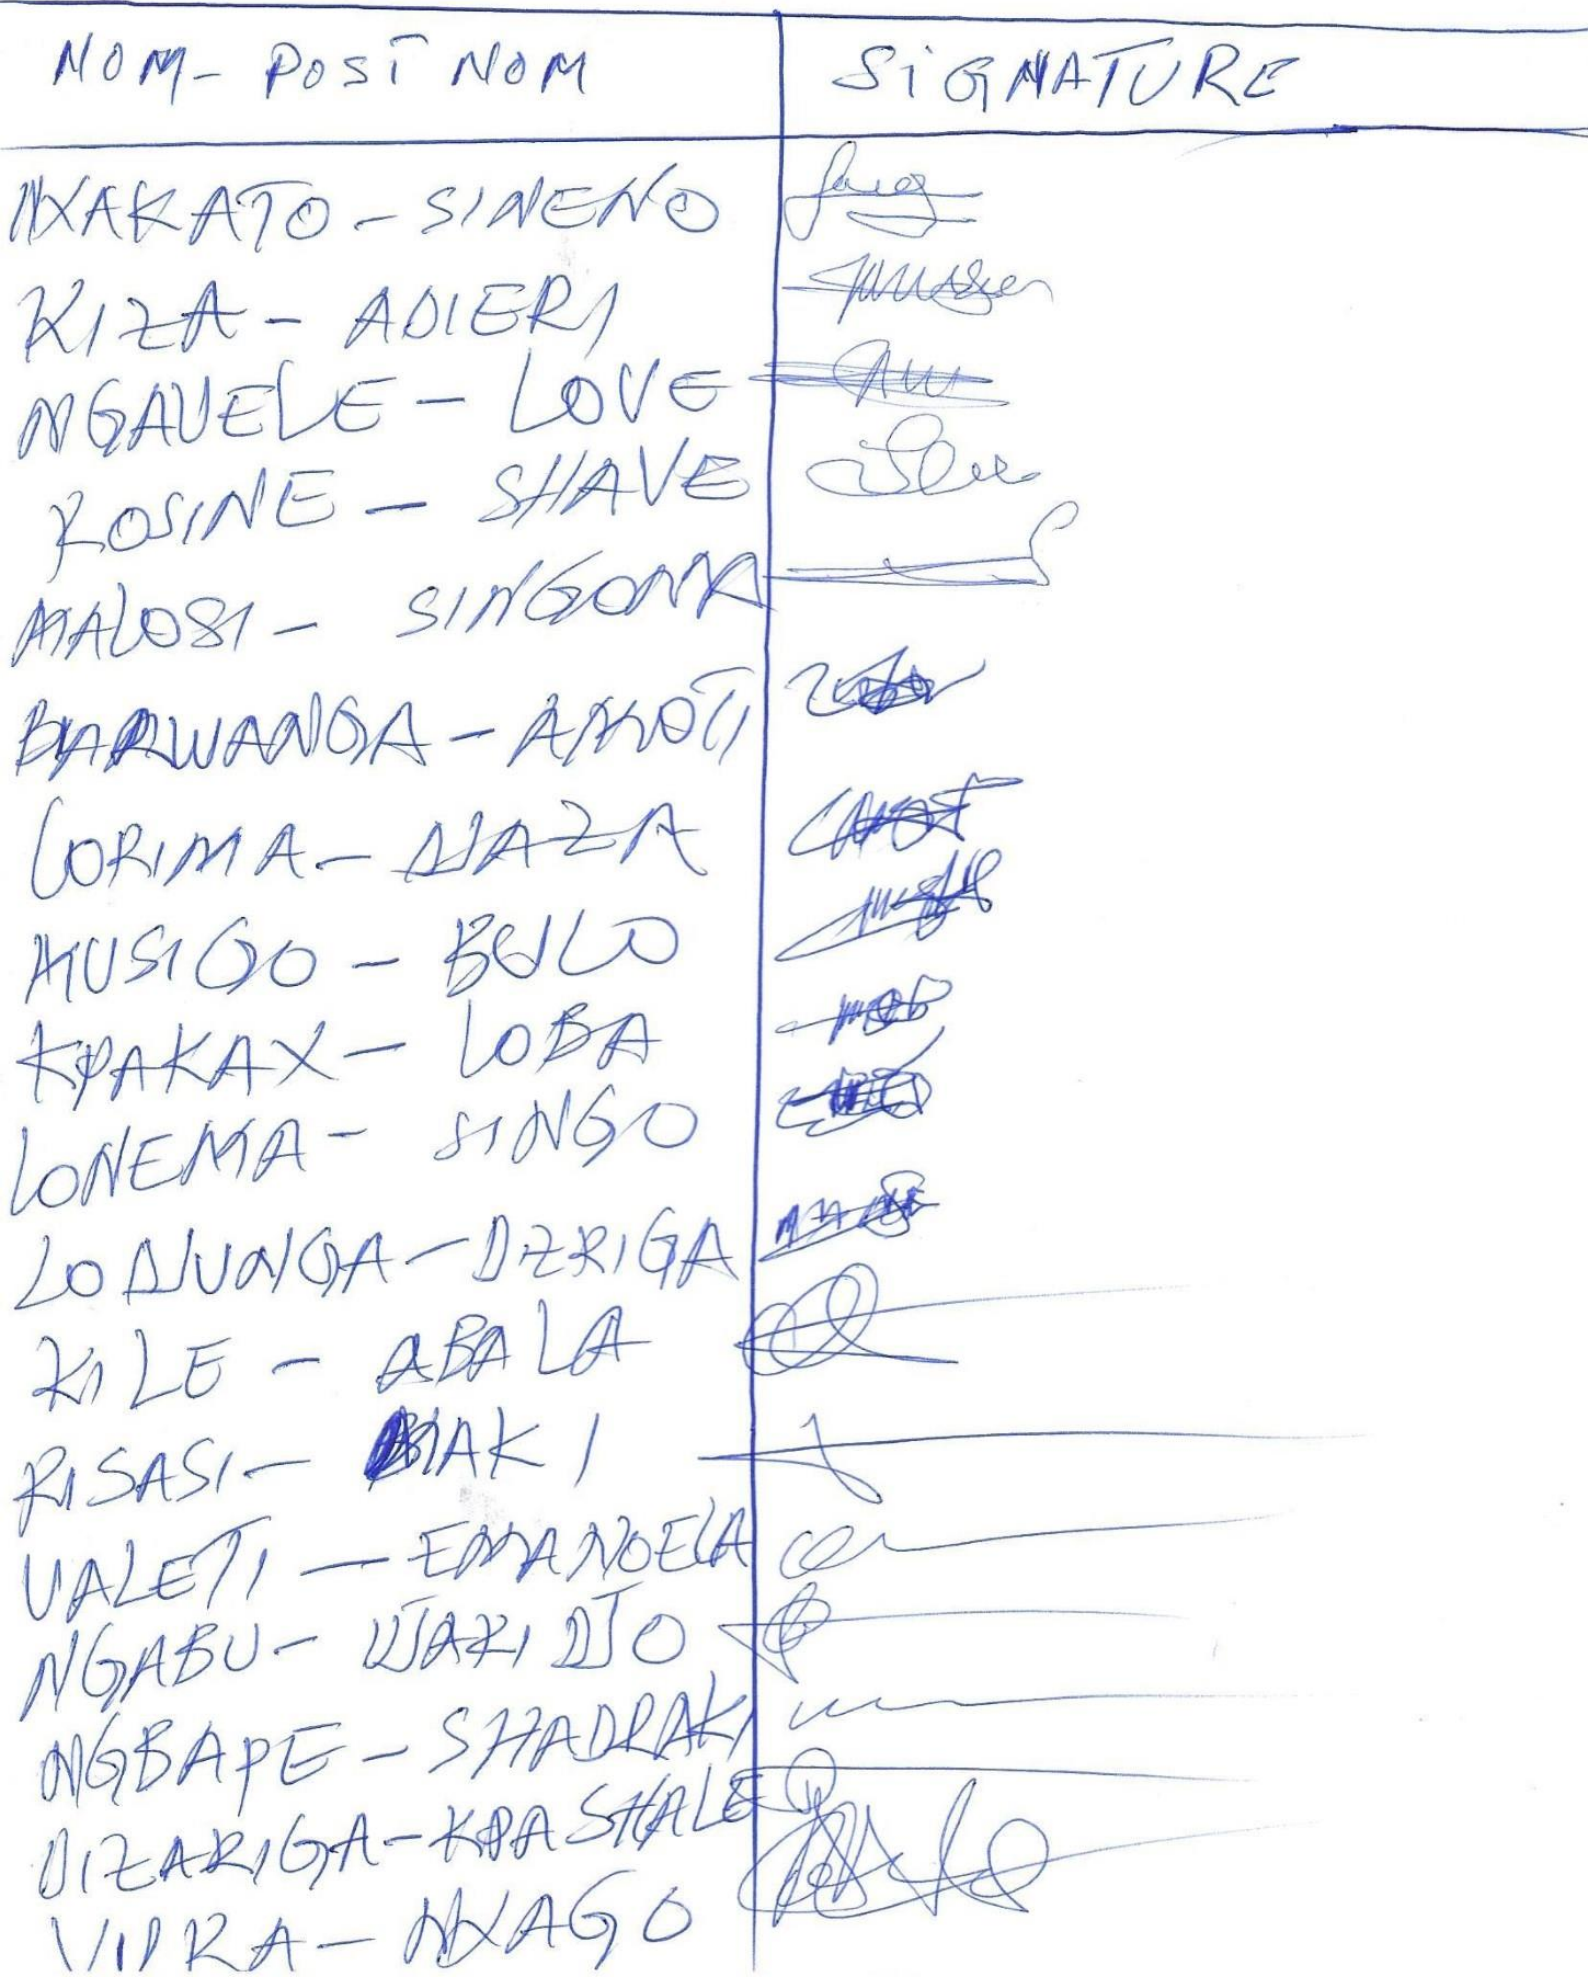 NOM - POSTNOM SIGNATURE
NYAKATO - SINENO
KIZA - ADIERI
NGAVELE - LOVE
ROSINE - SHAVE
MALOSI - SINGOMA
BARWANGA - AMOTI
LORIMA - NJAZA
MUSIGO - BULO
KPAKAY - LOBA
LONEMA - SINGO
LODJUNGA - DZRIGA
KILE - ABALA
RISASI - MAKI
VALETI - EMANOELA
NGABU - DJARIDJO
NGBAPE - SHADRAKI
DIZARIGA - KPASHALE
VIDRA - NYAGO